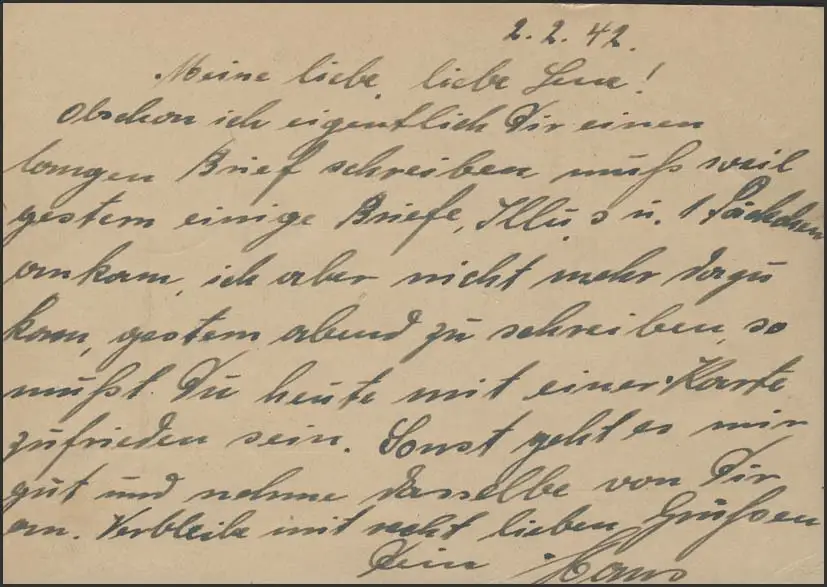 2.2.42.
Meine liebe, liebe Lene!
Obschon ich eigentlich Dir einen
langen Brief schreiben muß weil
gestern einige Briefe, Illu,s u. 1 Päckchen
ankam, ich aber nicht mehr dazu
kam, gestern abend zu schreiben, so
mußt Du heute mit einer Karte
zufrieden sein. Sonst geht es mir
gut und nehme dasselbe von Dir
an. Verbleibe mit recht lieben Grüßen
Dein Hans